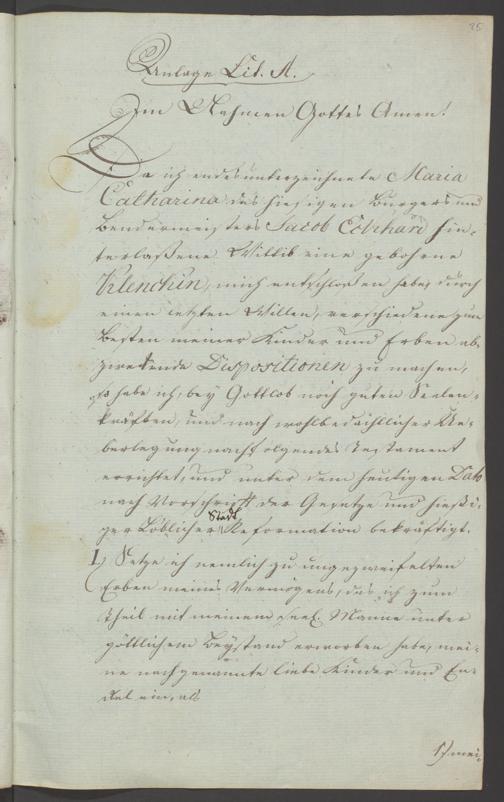 95
Anlage Lit. A.
Im Nahmen Gottes Amen!
Da ich endesunterzeichnete Maria
Catharina des hiesigen Burgers und
Bendermeisters Jacob Eckhard hin-
terlaßene Wittib eine gebohrne
Klenckin, mich entschloßen habe, durch
einen letzten Willen, verschiedene zum
Besten meiner Kinder und Erben ab-
zweckende Dispositionen zu machen,
so habe ich, bey Gottlob noch guten Seelen-
kräften, und nach wohlbedächtlicher Ue-
berlegung nachfolgendes Testament
errichtet, und unter dem heutigen Dato
nach Vorschrifft der Gesetze und hiesi-
ger Löblicher Stadt Reformation bekräftigt.
1.) Setze ich nemlich zu ungezweifelten
Erben meines Vermögens, das ich zum
Theil mit meinem seel. Manne unter
göttlichem Beystand erworben habe, mei-
ne nachgenannte liebe Kinder und En-
kel ein, als
1) mei-